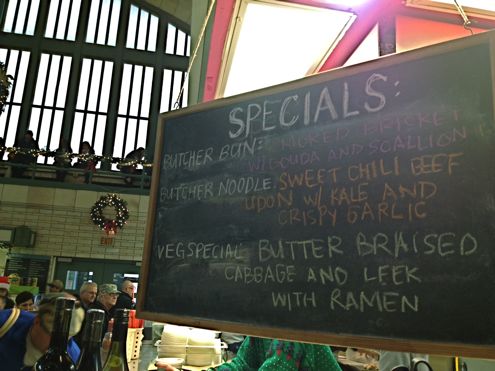 SPECIALS:
BUTCHER BUN: SMOKED BRICKET
W/GOUDA AND SCALLION!
BUTCHER NOODLE: SWEET CHILI BEEF
UDON W/ KALE AND
CRISPY GARLIC
VEG SPECIAL BUTTER BRAISED
CABBAGE AND LEEK
WITH RAMEN
EXIT